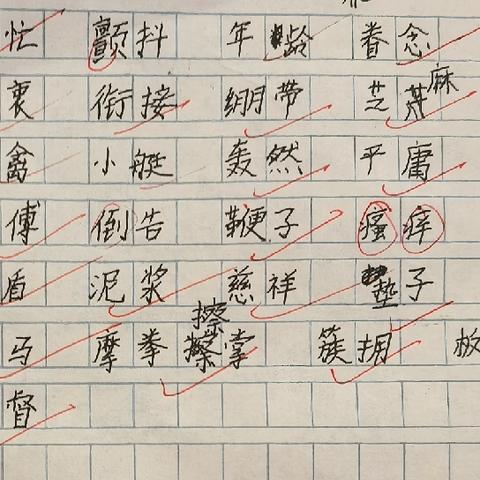 忙 颤抖 年龄 眷念
衷 衔接 绷带 芝麻
禽 小艇 轰然 平庸
傅 倒告 鞭子 瘙痒
盾 泥浆 慈祥 垫子
马 摩拳擦掌 簇拥 板
督